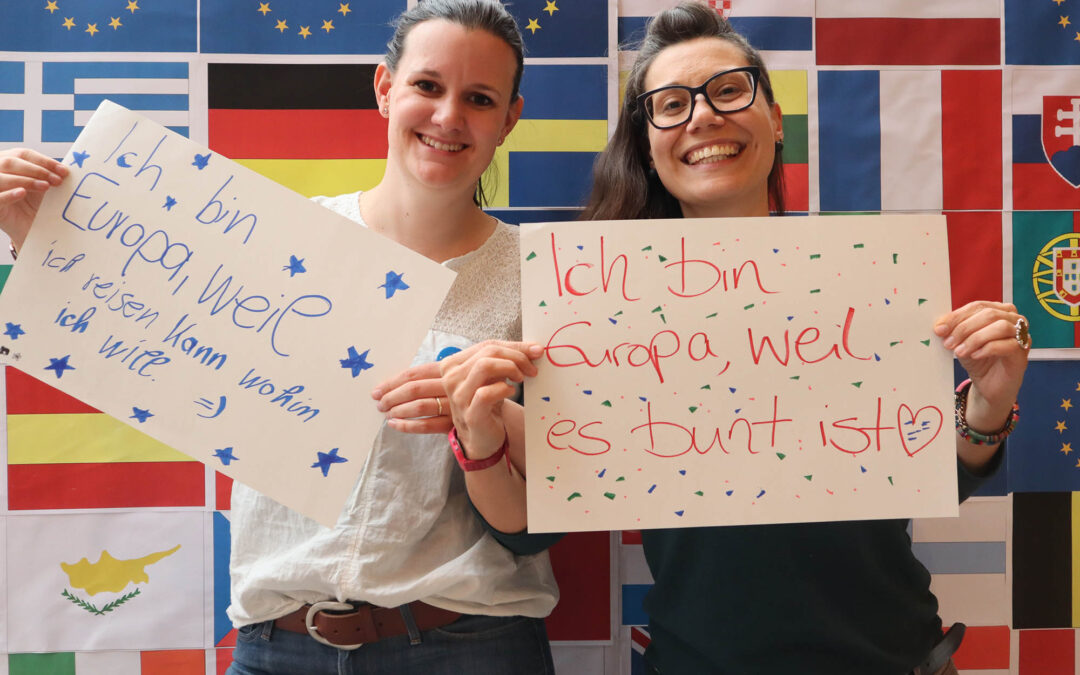 Ich bin
Europa, weil
ich reisen kann wohin
ich will. =)
Ich bin
Europa, weil
es bunt ist